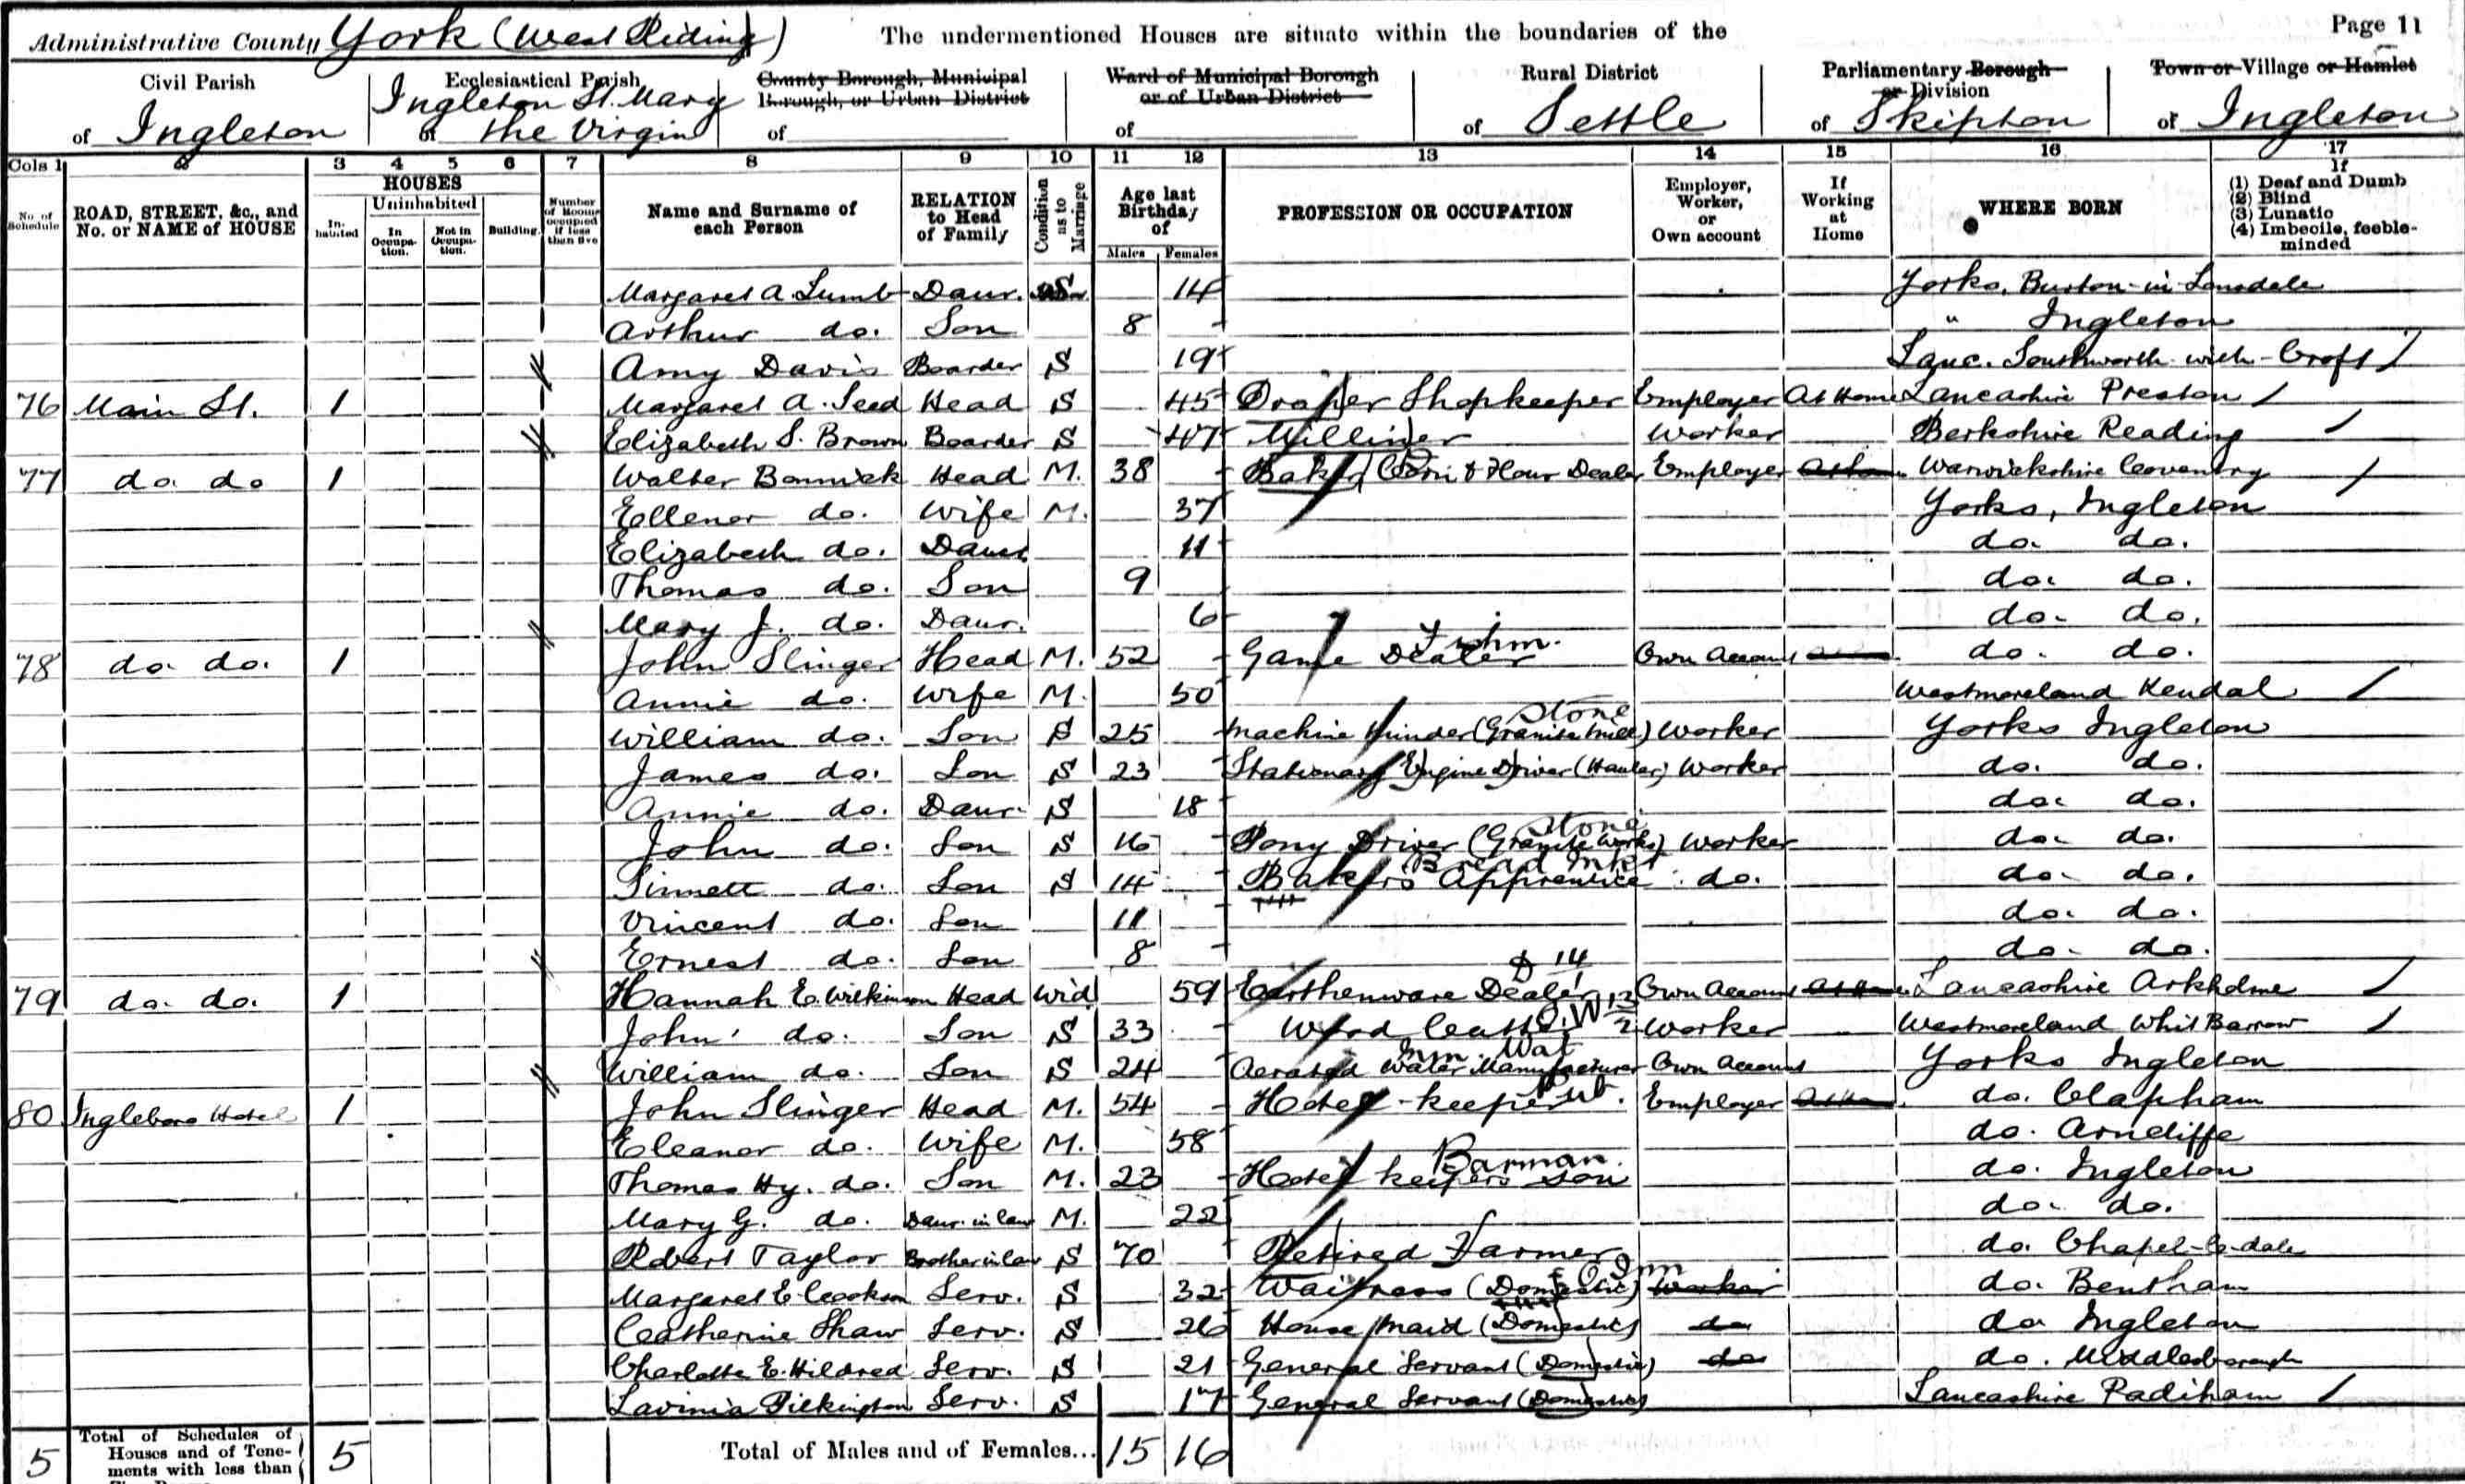 Administrative County York (West Riding) The undermentioned Houses are situate within the boundaries of the Page 11
Civil Parish Ecclesiastical Parish County Borough, Municipal Borough, or Urban District Ward of Municipal Borough or of Urban District Rural District Parliamentary Borough or Division Town or Village or Hamlet
of Ingleton of Ingleton St. Mary the Virgin of of of Settle of Skipton of Ingleton
Cols 1 2 3 4 5 6 7 8 9 10 11 12 13 14 15 16 17
No. of Schedule
ROAD, STREET, &c., and No. or NAME of HOUSE
HOUSES
Inhabited
Uninhabited
In Occupation.
Not in Occupation.
Building.
Number of Rooms occupied if less than five
Name and Surname of each Person
RELATION to Head of Family
Condition as to Marriage
Age last Birthday of
Males Females
PROFESSION OR OCCUPATION
Employer, Worker, or Own account
If Working at Home
WHERE BORN
If
(1) Deaf and Dumb
(2) Blind
(3) Lunatic
(4) Imbecile, feeble-minded
Margaret A. Lumb Daur. S 14 Yorks, Burton-in-Lonsdale
Arthur do. Son 8 " Ingleton
Amy Davis Boarder S 19 Lanc. Southworth with Croft
76 Main St. 1 Margaret A. Seed Head S 45 Draper Shopkeeper Employer At Home Lancashire Preston
Elizabeth S. Brown Boarder S 47 Milliner Worker Berkshire Reading
77 do. do 1 Walter Bonnick Head M. 38 Baker Corn & Flour Dealer Employer At home Warwickshire Coventry
Ellenor do. Wife M. 37 Yorks, Ingleton
Elizabeth do. Daur 11 do. do.
Thomas do. Son 9 do. do.
Mary J. do. Daur. 6 do. do.
78 do. do. 1 John Slinger Head M. 52 Game Dealer Fishm. Own Account do. do.
Annie do. Wife M. 50 Westmoreland Kendal
William do. Son S 25 Machine Minder (Granite Mill) Stone Worker Yorks Ingleton
James do. Son S 23 Stationary Engine Driver (Hauler) Worker do. do.
Annie do. Daur. S 18 do. do.
John do. Son S 16 Pony Driver (Granite Works) Stone Worker do. do.
Sinnett do. Son S 14 Baker's Apprentice Bread Mkr do. do. do.
Vincent do. Son 11 do. do.
Ernest do. Son 8 do. do.
79 do. do. 1 Hannah E. Wilkinson Head Wid 59 Earthenware Dealer D 14 Own Account At Home Lancashire Arkholme
John do. Son S 33 Worker Westmoreland Whit Barrow
William do. Son S 24 Aerated Water Manufacturer Own Account Yorks Ingleton
80 Ingleboro Hotel 1 John Slinger Head M. 54 Hotel-keeper Employer do. Clapham
Eleanor do. Wife M. 58 do. Arncliffe
Thomas Hy. do. Son M. 23 Hotel keepers Son Barman. do. Ingleton
Mary G. do. Daur. in law M. 22 do. do.
Robert Taylor Brother in law S 70 Retired Farmer do. Chapel-le-dale
Margaret E. Cookson Serv. S 32 Waitress (Domestic) Inn Worker do. Bentham
Catherine Shaw Serv. S 26 House Maid (Domestic) do do Ingleton
Charlotte E. Hildred Serv. S 21 General Servant (Domestic) do do. Middlesborough
Lavinia Pilkington Serv. S 17 General Servant (Domestic) Lancashire Padiham
5 Total of Schedules of Houses and of Tenements with less than 5 Total of Males and of Females... 15 16